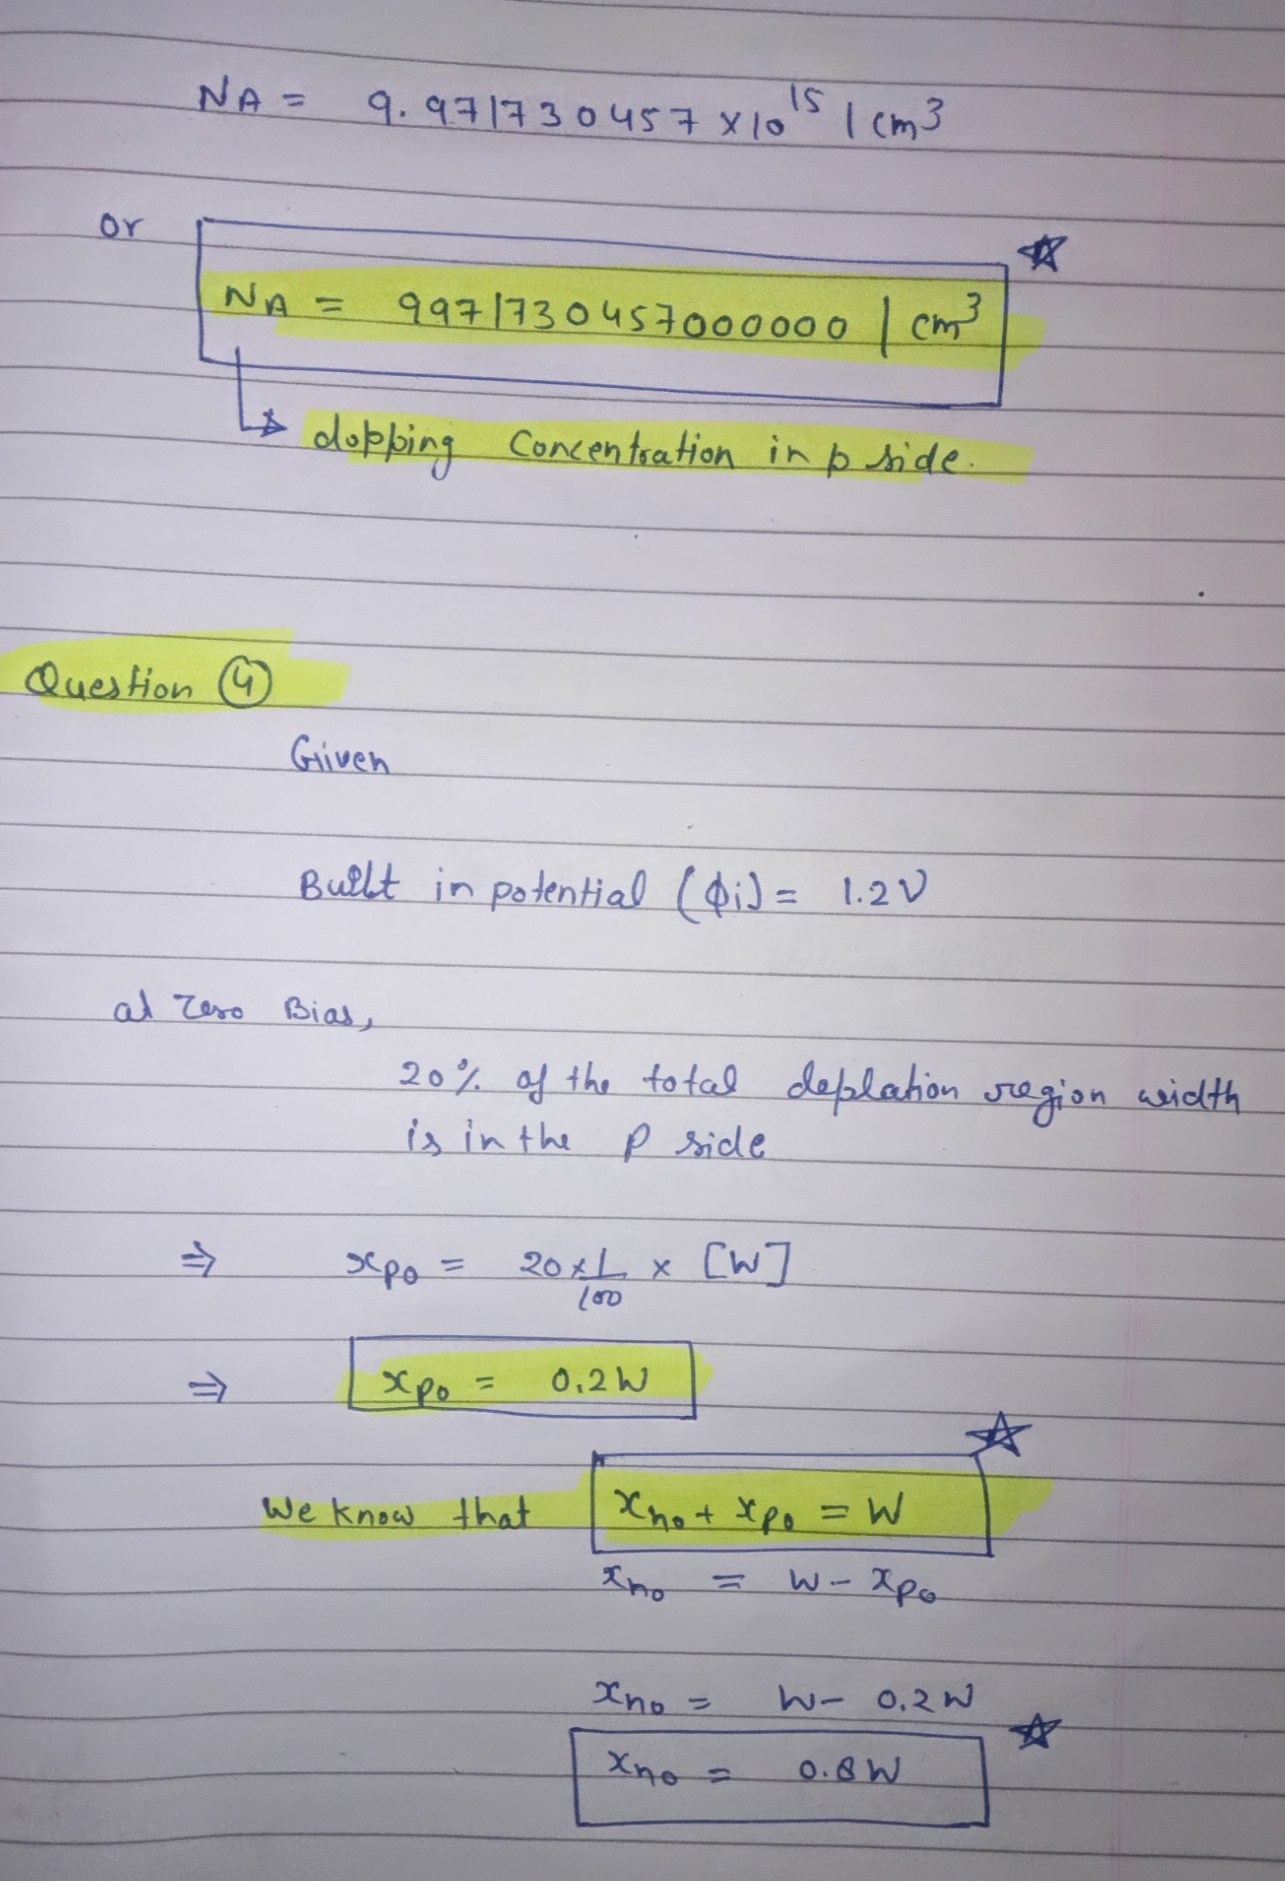 NA = 9.971730457 x10¹⁵ / cm³
or
NA = 9971730457000000 / cm³
dopping Concentration in p side.
Question ④
Given
Built in potential (ϕi) = 1.2V
at Zero Bias,
20% of the total deplation region width
is in the p side
⇒ xpo = 20x1/100 x [W]
⇒ xpo = 0.2W
We know that xno + xpo = W
xno = W - xpo
xno = W - 0.2W
xno = 0.8W